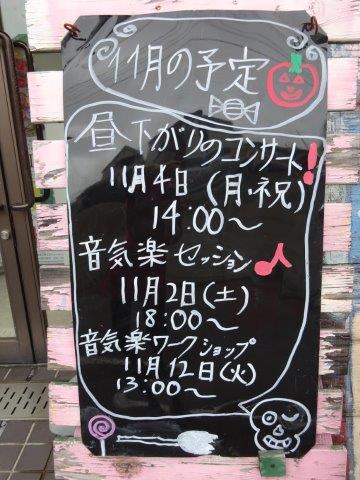 11月の予定
昼下がりのコンサート!
11月4日(月・祝)
14:00〜
音気楽セッション♪
11月2日(土)
18:00〜
音気楽ワークショップ
11月12日(火)
13:00〜